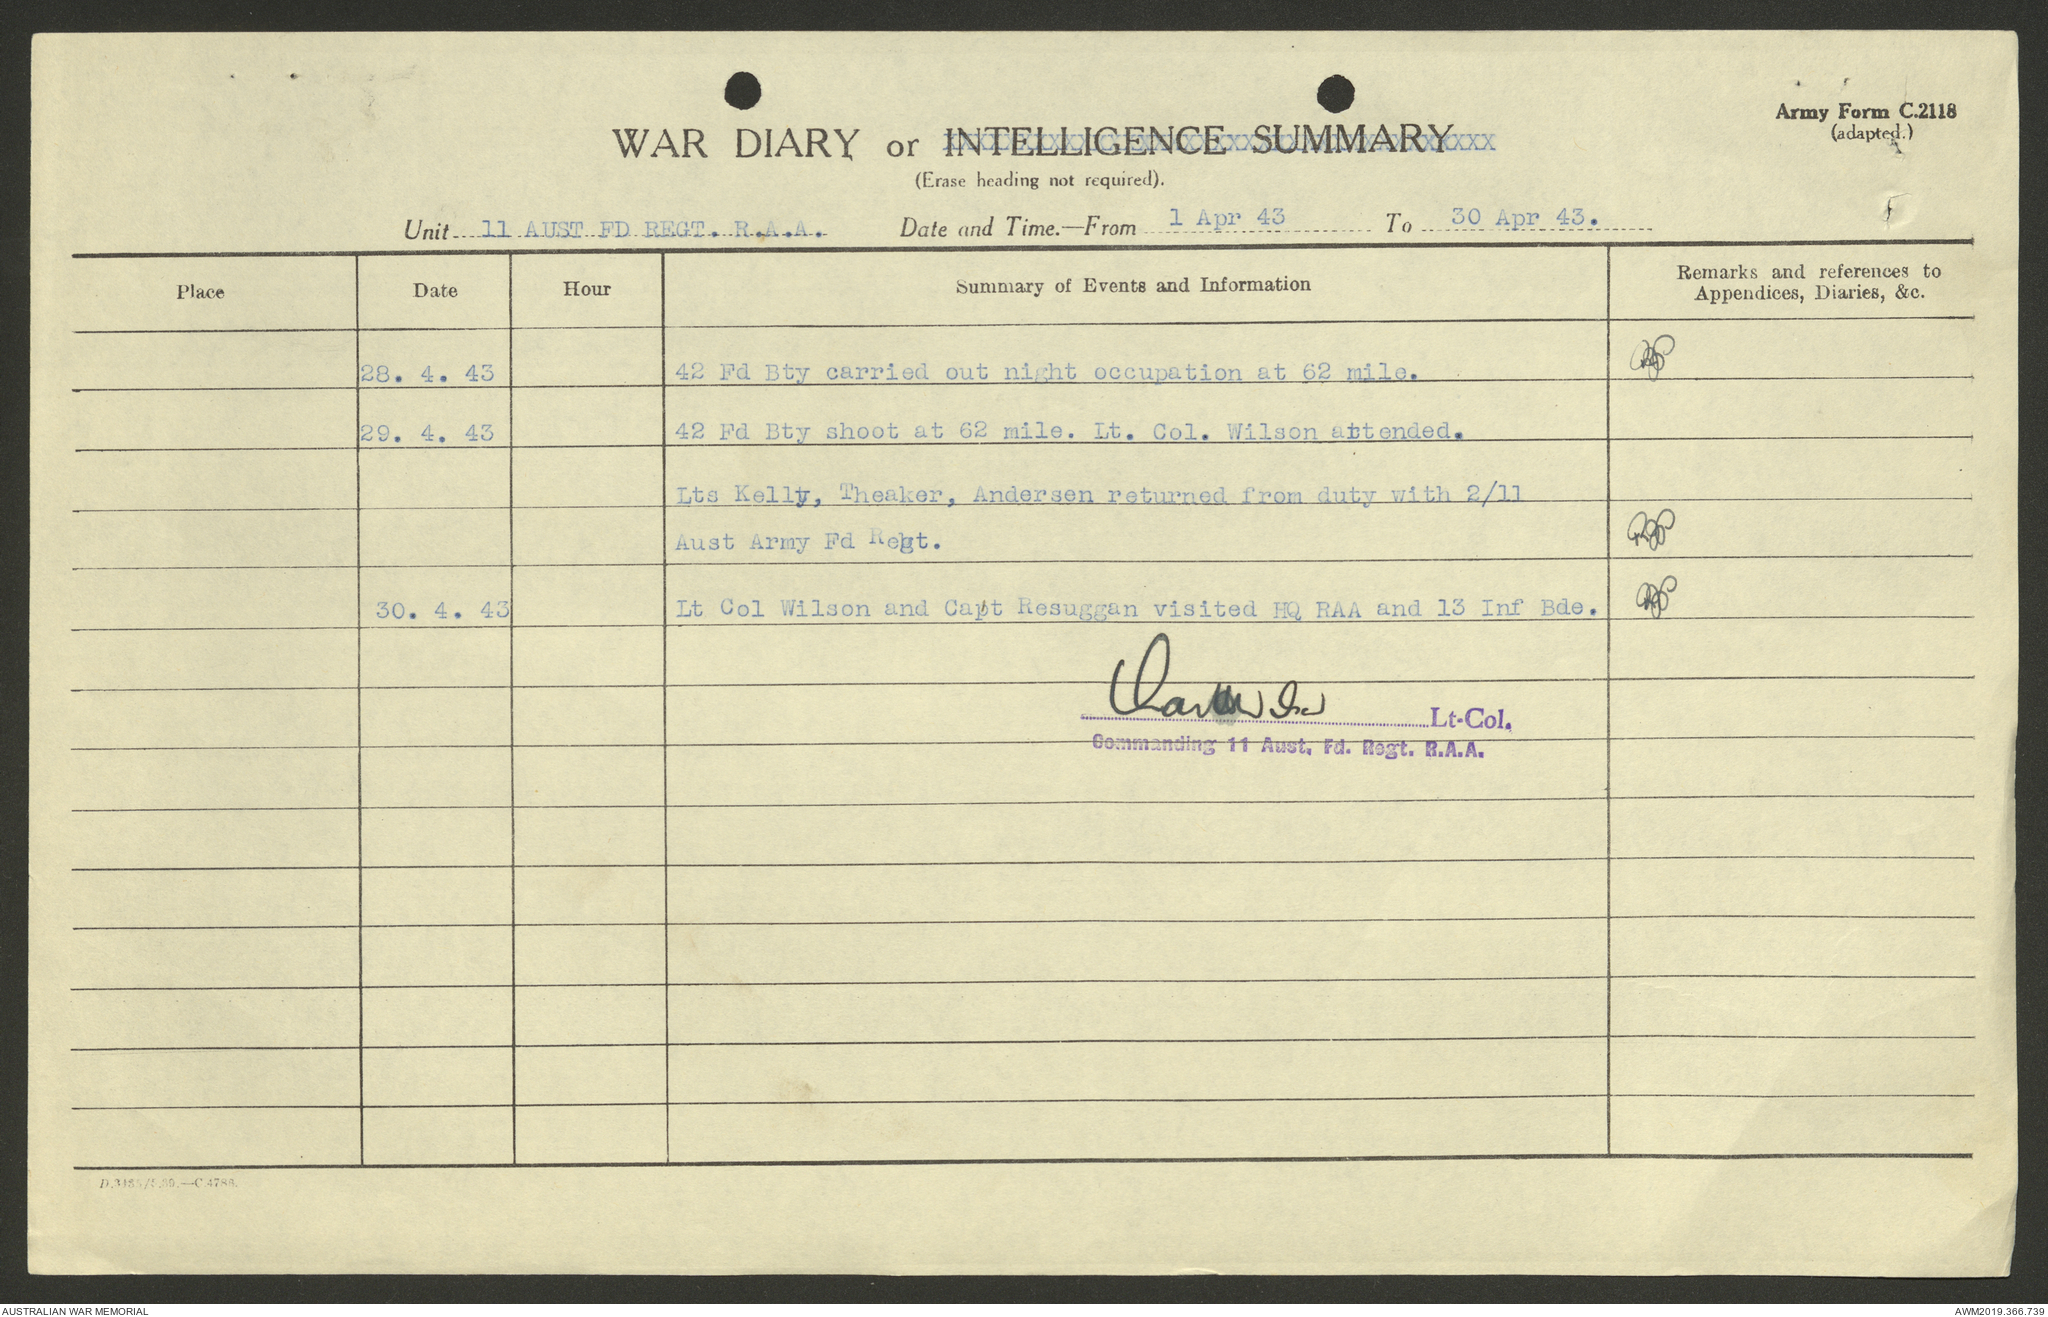 Army Form C.2118
(adapted.)
WAR DIARY or INTELLIGENCE SUMMARY
(Erase heading not required).
Unit 11 AUST FD REGT. R.A.A. Date and Time.—From 1 Apr 43 To 30 Apr 43.
Place Date Hour Summary of Events and Information Remarks and references to
Appendices, Diaries, &c.
28. 4. 43 42 Fd Bty carried out night occupation at 62 mile.
29. 4. 43 42 Fd Bty shoot at 62 mile. Lt. Col. Wilson attended.
Lts Kelly, Theaker, Andersen returned from duty with 2/11
Aust Army Fd Regt.
30. 4. 43 Lt Col Wilson and Capt Resuggan visited HQ RAA and 13 Inf Bde.
Lt-Col.
Commanding 11 Aust. Fd. Regt. R.A.A.
AUSTRALIAN WAR MEMORIAL AWM2019.366.739